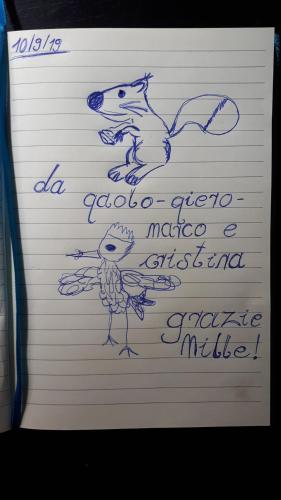 10/9/19
da
paolo-piero-
marco e
cristina
grazie
Mille!